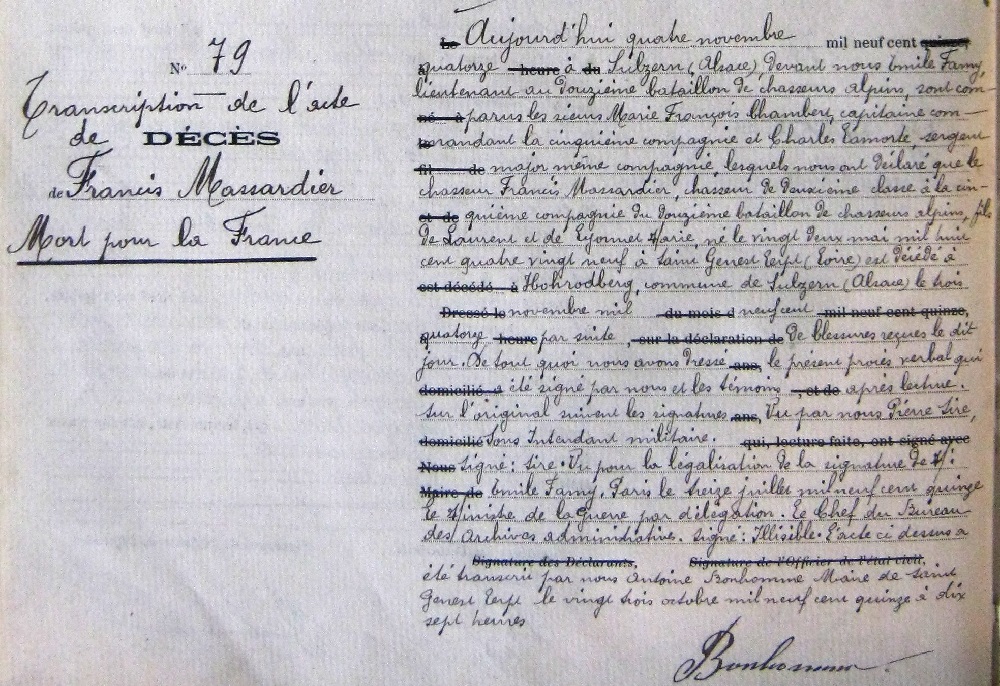 N° 79
Transcription de l'acte
de DÉCÈS
de Francis Massardier
Mort pour la France
Le Aujourd'hui quatre novembre mil neuf cent quinze,
quatorze heure à du Sulzern (Alsace), devant nous Emile Famy,
lieutenant au douzième bataillon de chasseurs alpins, sont com-
né à parus les sieurs Marie François Chambert, capitaine com-
mandant la cinquième compagnie et Charles Lamorte, sergent
fil de major même compagnie, lesquels nous ont déclaré que le
chasseur Francis Massardier, chasseur de deuxième classe à la cin-
et de quième compagnie du douzième bataillon de chasseurs alpins, fils
de Laurent et de Eyonnet Marie, né le vingt deux mai mil huit
cent quatre vingt neuf à Saint Genest Lerpt (Loire) est décédé à
est décédé à Hohrodberg, commune de Sulzern (Alsace) le trois
Dressé le novembre mil du mois d neuf cent mil neuf cent quinze,
quatorze heure par suite , sur la déclaration de de blessures reçues le dit
jour. De tout quoi nous avons dressé ans, le présent procès verbal qui
domicilié à a été signé par nous et les témoins , et de après lecture.
Sur l'original suivent les signatures ans, Vu par nous Pierre Sire,
domicilié Sous Intendant militaire. qui, lecture faite, ont signé avec
Nous Signé: Sire. Vu pour la légalisation de la signature de M.
Maire de Emile Famy. Paris le treize juillet mil neuf cent quinze
Le Ministre de la Guerre par délégation. Le Chef du Bureau
des Archives administrative. Signé: Illisible. L'acte ci dessus a
Signature des Déclarants, Signature de l'Officier de l'état civil,
été transcrit par nous Antoine Bonhomme Maire de Saint
Genest Lerpt le vingt trois octobre mil neuf cent quinze à dix
sept heures
Bonhomme